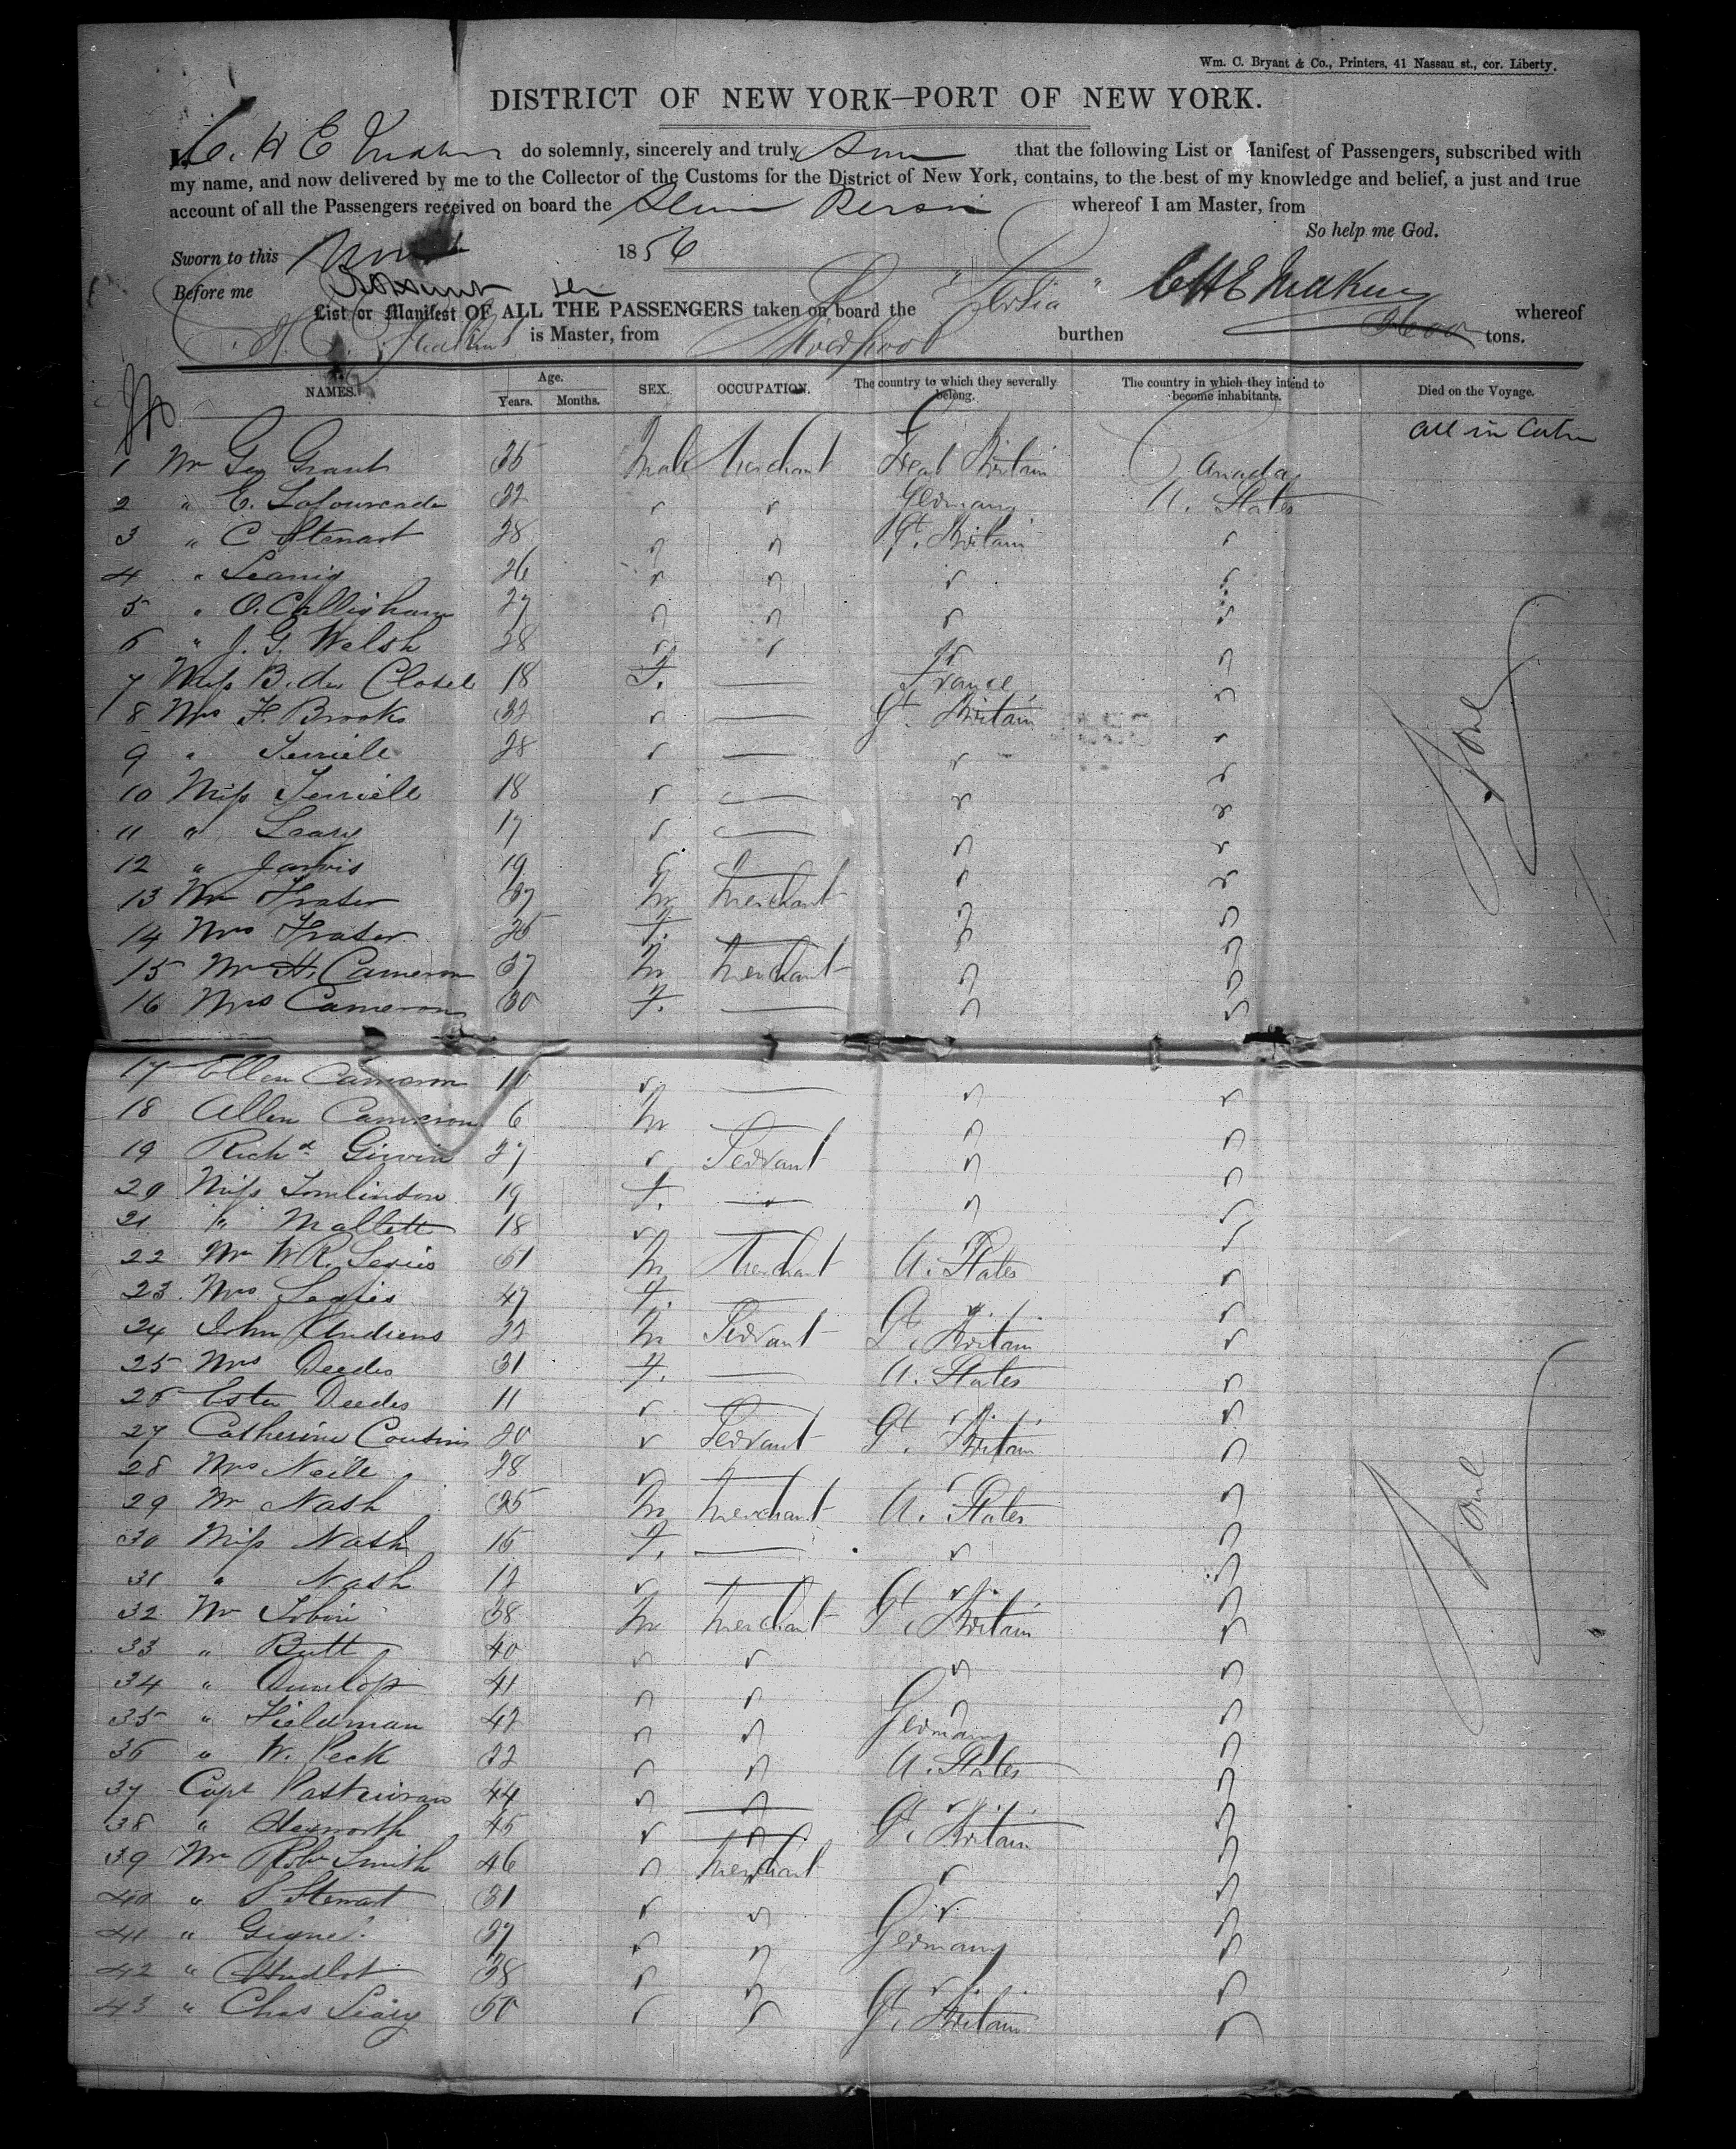 Wm. C. Bryant & Co., Printers, 41 Nassau st., cor. Liberty.
DISTRICT OF NEW YORK—PORT OF NEW YORK.
I, C. H. E. Judkins do solemnly, sincerely and truly that the following List or Manifest of Passengers, subscribed with
my name, and now delivered by me to the Collector of the Customs for the District of New York, contains, to the best of my knowledge and belief, a just and true
account of all the Passengers received on board the Persia whereof I am Master, from
So help me God.
Sworn to this 1856
Before me CHE Judkins
List or Manifest OF ALL THE PASSENGERS taken on board the "Persia" whereof
C. H. E. Judkins is Master, from Liverpool burthen tons.
NAMES. Age. Years. Months. SEX. OCCUPATION. The country to which they severally belong. The country in which they intend to become inhabitants. Died on the Voyage.
No
All in Cabin
1 Mr Geo Grant 35 Male Merchant Great Britain Canada
2 " E. Lafourcade 32 " " Germany U. States
3 " C Stewart 28 " " Gt. Britain "
4 " 26 " " " "
5 " O. Callighan 27 " " " "
6 " J. G. Welsh 28 " " " "
7 Miss B. du Closel 18 F. — France "
8 Mrs F. Brooks 32 " — Gt. Britain "
9 " 28 " — " "
10 Miss 18 " — " "
11 " Leary 17 " — " "
12 " Jarvis 19 " — " "
13 Mr Fraser 37 M Merchant " "
14 Mrs Fraser 25 F. — " "
15 Mr H. Cameron 37 M Merchant " "
16 Mrs Cameron 30 F. — " "
17 Ellen Cameron 10 " — " "
18 Allen Cameron 6 M — " "
19 Richd Girvin 27 " Servant " "
20 Miss Tomlinson 19 F. — " "
21 " Mallett 18 " — " "
22 Mr W R. 51 M Merchant U. States "
23 Mrs 47 F. — " "
24 John Andrews 22 M Servant Gt. Britain "
25 Mrs Deedes 31 F. — U. States "
26 Ester Deedes 11 " — " "
27 Catherine Cousins 20 " Servant Gt. Britain "
28 Mrs Neile 28 " — " "
29 Mr Nash 35 M Merchant U. States "
30 Miss Nash 15 F. — " "
31 " Nash 12 " — " "
32 Mr Tobin 38 M Merchant Gt. Britain "
33 " Butt 40 " " " "
34 " Dunlop 41 " " " "
35 " Fieldman 42 " " Germany "
36 " W. Peck 32 " " U. States "
37 Capt 44 " — " "
38 " Haworth 45 " — Gt. Britain "
39 Mr Robt Smith 46 " Merchant " "
40 " S Stewart 31 " " " "
41 " 37 " " Germany "
42 " 38 " " " "
43 " Chas 50 " " Gt. Britain "
None
None